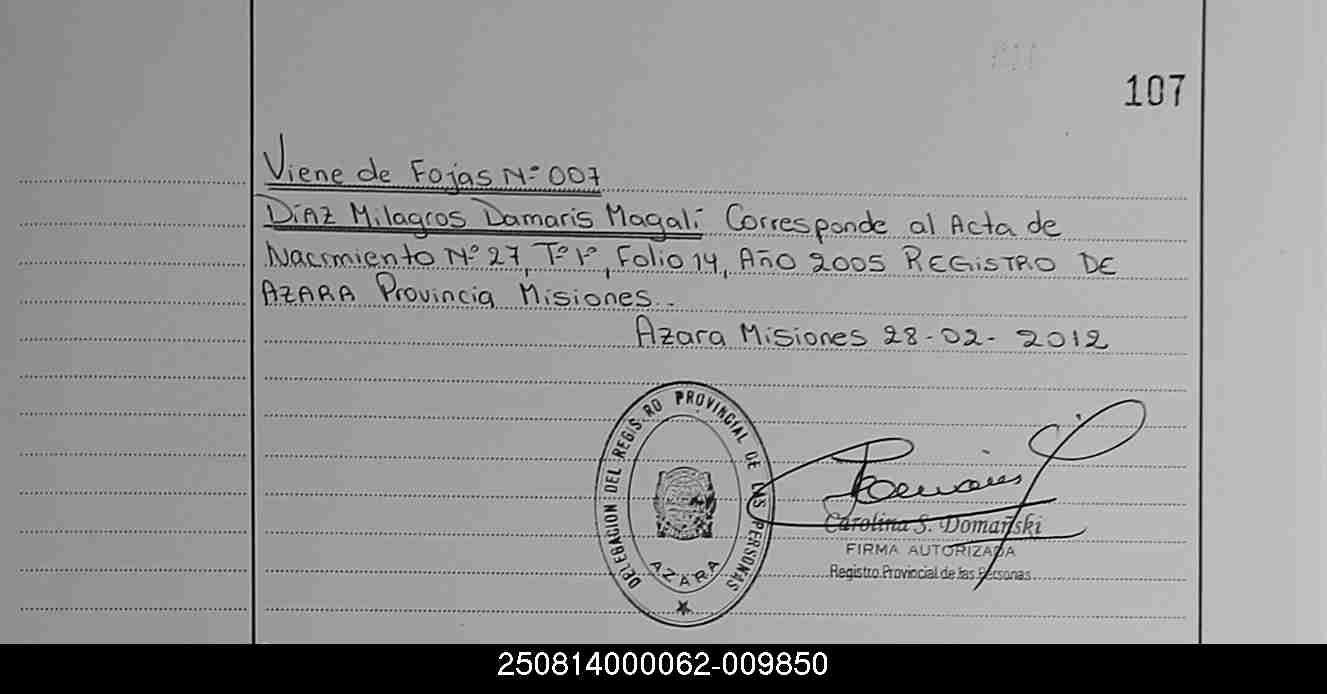 107
Viene de Fojas Nº 007
Díaz Milagros Damaris Magalí Corresponde al Acta de
Nacimiento Nº 27, Tº 1º, Folio 14, Año 2005 REGISTRO DE
AZARA Provincia Misiones..
Azara Misiones 28-02-2012
DELEGACION DEL REGIS RO PROVINCIAL DE LAS PERSONAS
AZARA
Carolina S. Domański
FIRMA AUTORIZADA
Registro Provincial de las Personas
250814000062-009850